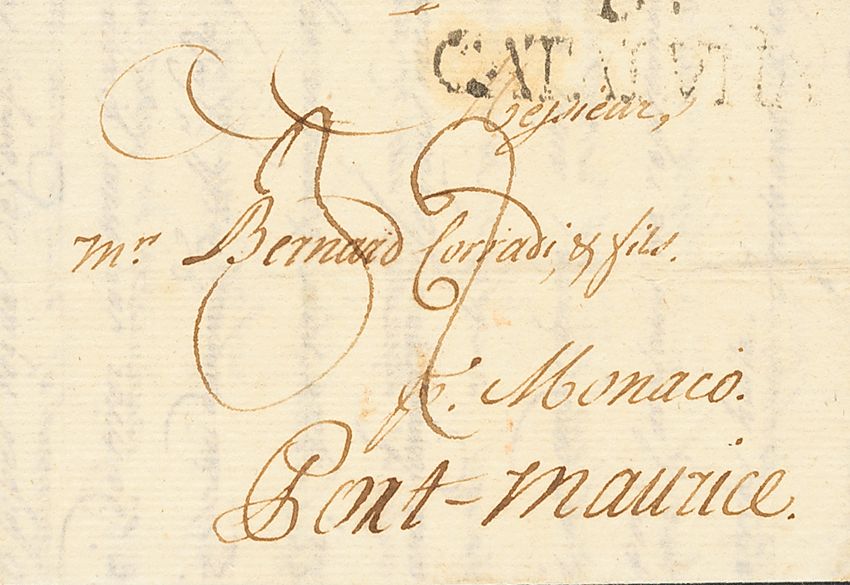 CATALUÑA
Messieur,
Mr. Bernard Corradi, & fils.
pr. Monaco.
Port-maurice.